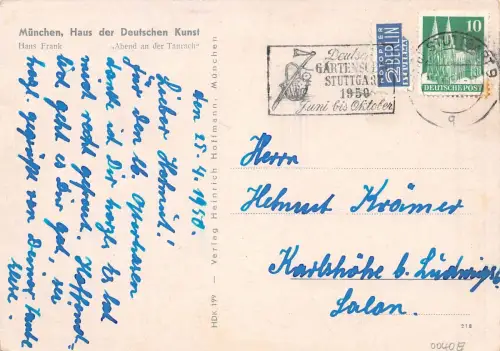 München, Haus der Deutschen Kunst
Hans Frank „Abend an der Taurach“
den 25.4.1950.
Lieber Helmut!
Für den lb. Osterhasen
danke ich Dir herzl. Es hat
mich recht gefreut. Hoffent-
lich geht es Dir gut, sei
herzl. gegrüßt von Deiner Tante
HDK 199 – Verlag Heinrich Hoffmann, München
Deutsche
GARTENSCHAU
STUTTGART
1950
Juni bis Oktober
NOTOPFER
2 BERLIN
STEUERMARKE
10
DEUTSCHE POST
STUTTGART 9
q
Herrn
Helmut Krämer
Karlshöhe b. Ludwigsb.
Salon.
518
0040E